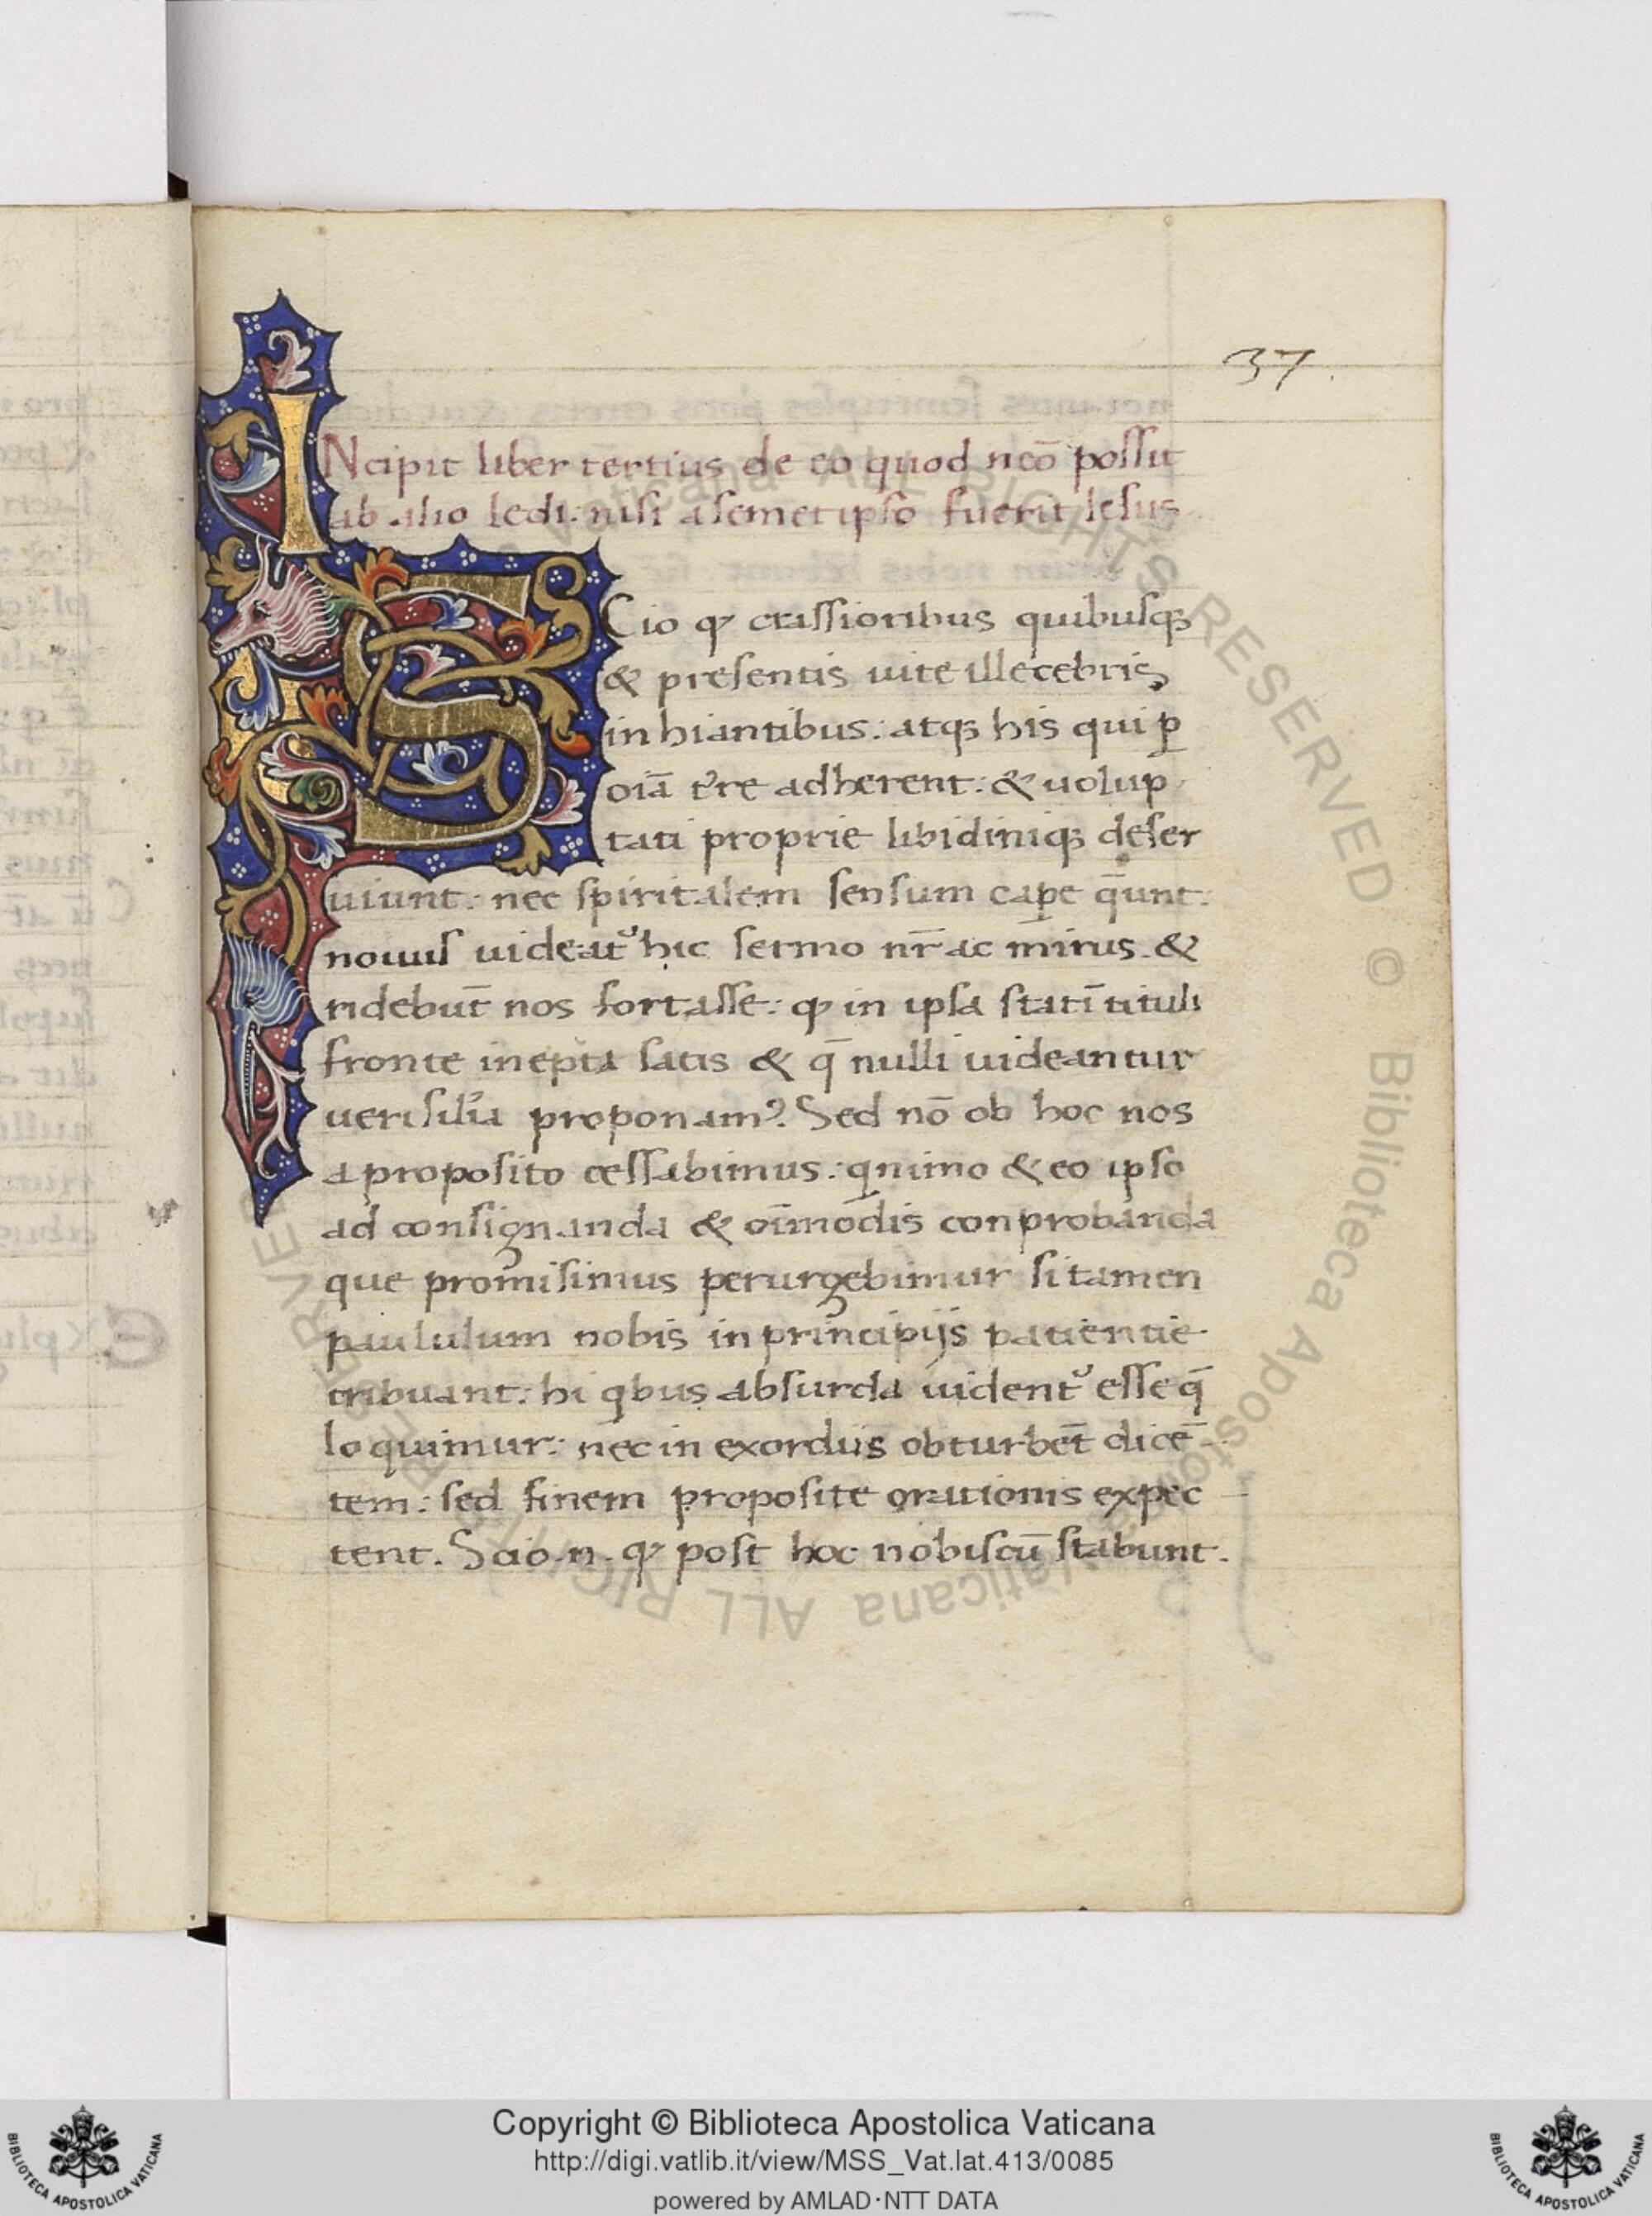 37.
INcipit liber tertius de eo quod neō possit
ab alio ledi: nisi a semetipso fuerit lesus
SCio ꝙ crassioribus quibusqꝫ
& presentis uite illecebris
inhiantibus: atqꝫ his qui ꝑ
oīa t᾽re adherent: & uolup
tati proprie libidiniqꝫ deser
uiunt: nec spiritalem sensum caꝑe q̄unt:
nouus uideat᾽ hic sermo nr̄ ac mirus. &
ridebūt nos fortasse: ꝙ in ipsa statī tituli
fronte inepta satis & q̄ nulli uideantur
uerisil᾽ia proponam᾽. Sed nō ob hoc nos
a proposito cessabimus: qnimo & eo ipso
ad consignanda & oīmodis conprobanda
que promisimus perurgebimur si tamen
paululum nobis in principijs patientie
tribuant: hi qbus absurda uident᾽ esse q̄
loquimur: nec in exordiis obturbēt dicē
tem: sed finem proposite orationis expec
tent. Scio .n. ꝙ post hoc nobiscū stabunt.
Copyright © Biblioteca Apostolica Vaticana
http://digi.vatlib.it/view/MSS_Vat.lat.413/0085
powered by AMLAD·NTT DATA